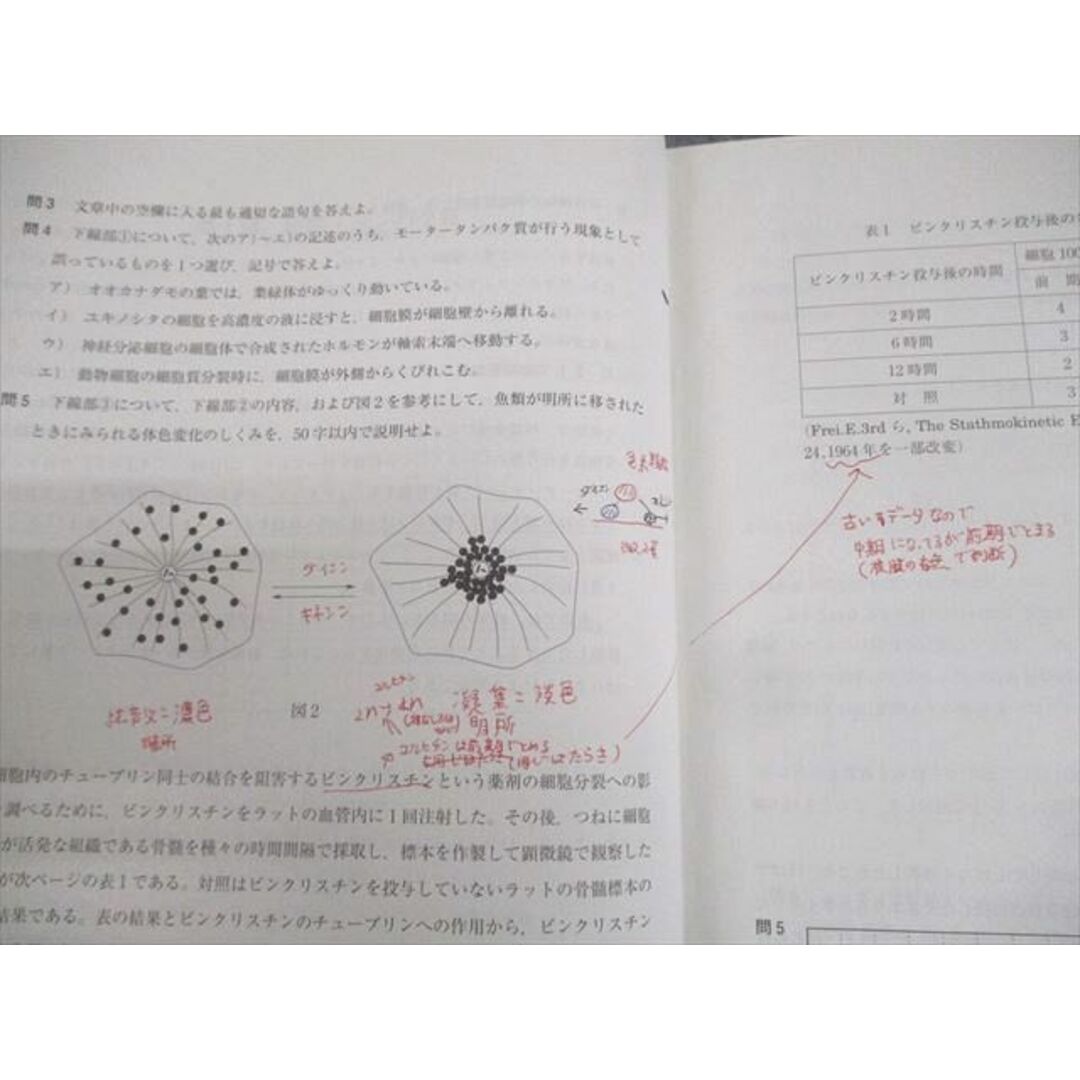 問3 文章中の空欄に入る最も適切な語句を答えよ。
問4 下線部①について、次のア)~エ)の記述のうち、モータータンパク質が行う現象として
誤っているものを1つ選び、記号で答えよ。
ア) オオカナダモの葉では、葉緑体がゆっくり動いている。
イ) ユキノシタの細胞を高濃度の液に浸すと、細胞膜が細胞壁から離れる。
ウ) 神経分泌細胞の細胞体で合成されたホルモンが軸索末端へ移動する。
エ) 動物細胞の細胞質分裂時に、細胞膜が外側からくびれこむ。
問5 下線部③について、下線部②の内容、および図2を参考にして、魚類が明所に移された
ときにみられる体色変化のしくみを、50字以内で説明せよ。
ダイニン
キネシン
濃色
図2
凝集=淡色
2n→4n
明所
コルヒチンは前期でとめる
胞内のチューブリン同士の結合を阻害するビンクリスチンという薬剤の細胞分裂への影
調べるために、ビンクリスチンをラットの血管内に1回注射した。その後、つねに細胞
が活発な組織である骨髄を種々の時間間隔で採取し、標本を作製して顕微鏡で観察した
が次ページの表1である。対照はビンクリスチンを投与していないラットの骨髄標本の
結果である。表の結果とビンクリスチンのチューブリンへの作用から、ビンクリスチン
表1 ビンクリスチン投与後の
ビンクリスチン投与後の時間 細胞100
前 期
2時間 4
6時間 3
12時間 2
対 照 3
(Frei.E.3rd ら, The Stathmokinetic E
24,1964年を一部改変)
古いデータなので
中期になってるが前期でとまる
問5